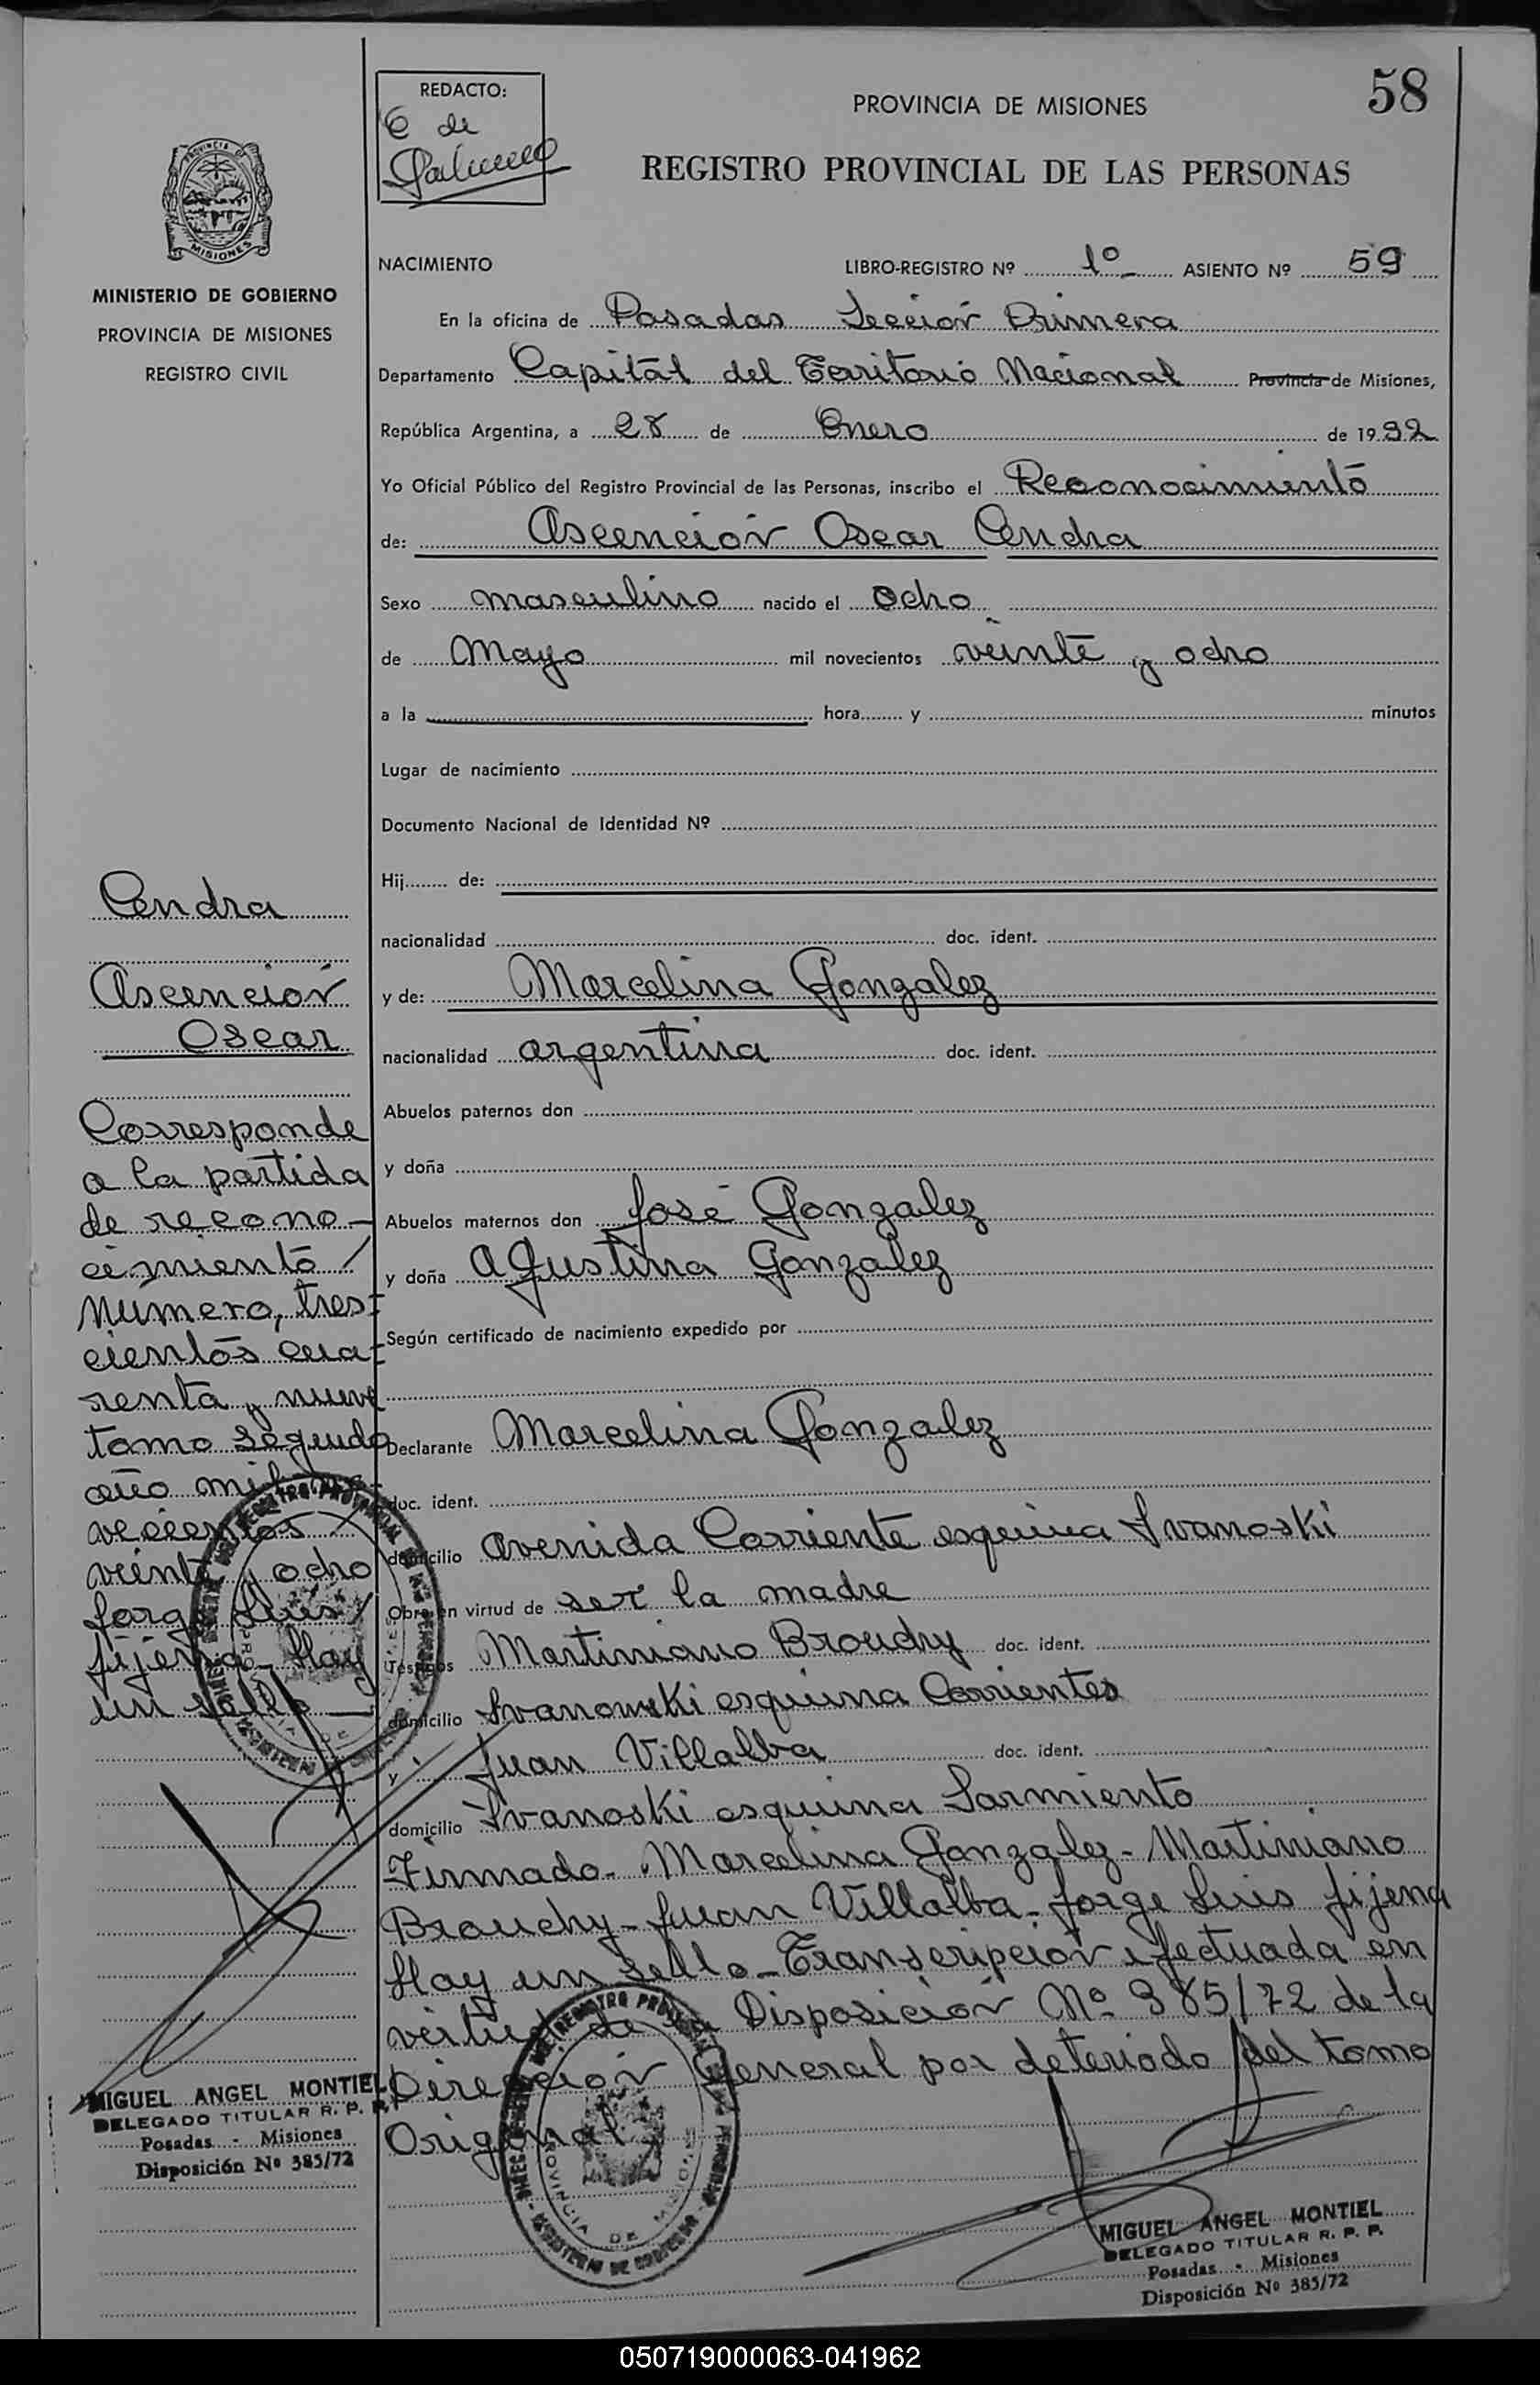 58
REDACTO:
E de
PROVINCIA DE MISIONES
REGISTRO PROVINCIAL DE LAS PERSONAS
PROVINCIA DE
MISIONES
MINISTERIO DE GOBIERNO
PROVINCIA DE MISIONES
REGISTRO CIVIL
NACIMIENTO LIBRO-REGISTRO Nº 1º ASIENTO Nº 59
En la oficina de Posadas Sección Primera
Departamento Capital del Territorio Nacional Provincia de Misiones,
República Argentina, a 28 de Enero de 1932
Yo Oficial Público del Registro Provincial de las Personas, inscribo el Reconocimiento
de: Ascención Oscar Cendra
Sexo masculino nacido el ocho
de Mayo mil novecientos veinte y ocho
a la hora y minutos
Lugar de nacimiento
Documento Nacional de Identidad Nº
Hij de:
nacionalidad doc. ident.
y de: Marcelina Gonzalez
nacionalidad argentina doc. ident.
Abuelos paternos don
y doña
Abuelos maternos don José Gonzalez
y doña Agustina Gonzalez
Según certificado de nacimiento expedido por
Declarante Marcelina Gonzalez
doc. ident.
domicilio Avenida Corriente esquina Ivanoski
Obra en virtud de ser la madre
Testigos Martiniano Brouchy doc. ident.
domicilio Ivanowski esquina Corrientes
y Juan Villalba doc. ident.
domicilio Ivanoski esquina Sarmiento
Firmado- Marcelina Gonzalez- Martiniano
Brouchy- Juan Villalba- Jorge Luis Jijena
Hay un sello- Transcripción efectuada en
virtud de la Disposición Nº 385/72 de la
Dirección General por deteriodo del tomo
Original
Cendra
Ascención
Oscar
Corresponde
a la partida
de recono-
cimiento /
número, tres=
cientos cua=
renta y nueve
tomo segundo
año mil no-
vecientos /
veinte y ocho
Jorge Luis /
Jijena- Hay
un sello
MIGUEL ANGEL MONTIEL
DELEGADO TITULAR R. P. P.
Posadas - Misiones
Disposición Nº 385/72
MIGUEL ANGEL MONTIEL
DELEGADO TITULAR R. P. P.
Posadas - Misiones
Disposición Nº 385/72
050719000063-041962